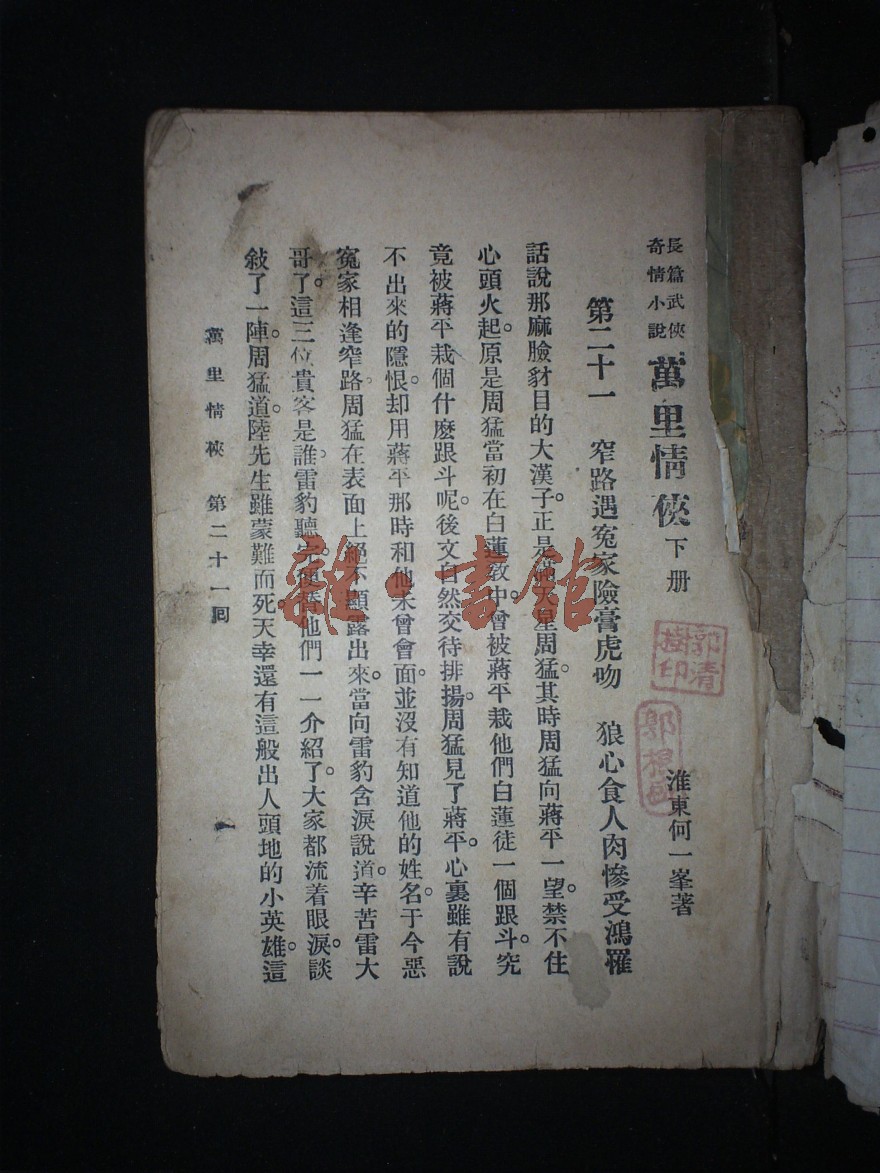 長篇武俠
奇情小說
萬里情俠下册
淮東何一峯著
第二十一 窄路遇冤家險膏虎吻 狼心食人肉慘受鴻羅
話說那麻臉豺目的大漢子。正是天星周猛。其時周猛向蔣平一望。禁不住
心頭火起。原是周猛當初在白蓮敎中。曾被蔣平栽他們白蓮徒一個跟斗。究
竟被蔣平栽個什麽跟斗呢。後文自然交待排揚。周猛見了蔣平。心裏雖有說
不出來的隱恨。却用蔣平那時和他未曾會面。並沒有知道他的姓名。于今惡
冤家相逢窄路。周猛在表面上絕不顯露出來。當向雷豹含淚說道。辛苦雷大
哥了。這三位貴客是誰。雷豹聽他們一一介紹了。大家都流着眼淚。談
敍了一陣。周猛道。陸先生雖蒙難而死。天幸還有這般出人頭地的小英雄。這
萬里情俠 第二十一囘
一
郭清
樹印
雜·書館